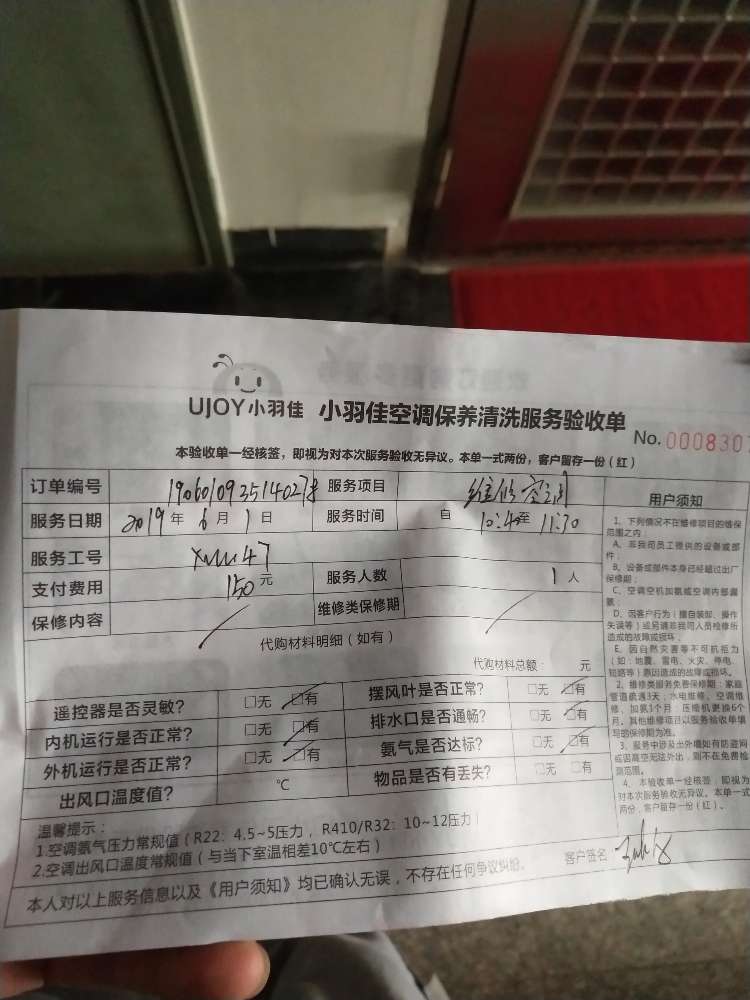 UJOY小羽佳 小羽佳空调保养清洗服务验收单
No. 0008301
本验收单一经核签，即视为对本次服务验收无异议。本单一式两份，客户留存一份（红）
订单编号 服务项目 维修空调
服务日期 2019 年 6 月 1 日 服务时间 自 至 11:30
服务工号
支付费用 150 元 服务人数 1 人
保修内容 维修类保修期
代购材料明细（如有）
代购材料总额： 元
遥控器是否灵敏？ □无 □有 摆风叶是否正常？ □无 □有
内机运行是否正常？ □无 □有 排水口是否通畅？ □无 □有
外机运行是否正常？ □无 □有 氨气是否达标？ □无 □有
出风口温度值？ ℃ 物品是否有丢失？ □无 □有
温馨提示：
1.空调氨气压力常规值（R22：4.5~5压力，R410/R32：10~12压力）
2.空调出风口温度常规值（与当下室温相差10℃左右）
本人对以上服务信息以及《用户须知》均已确认无误，不存在任何争议纠纷。 客户签名
用户须知
1、下列情况不在维修项目的维保
范围之内：
A、非我司员工提供的设备或部
件；
B、设备或部件本身已经超过出厂
保修期；
C、空调空机加氨或空调内部漏
氨；
D、因客户行为（擅自装卸、操作
失误等）或另请非我司人员检修所
造成的故障或损坏；
E、因自然灾害等不可抗拒力
（如：地震、雷电、火灾、停电、
短路等）原因造成的故障或损坏。
2、维修类服务免费保修期：家庭
管道疏通3天；水电维修、空调维
修、加氨3个月；压缩机更换6个
月。其他维修项目以服务验收单填
写的保修期为准。
3、服务中涉及出外墙如有防盗网
或因高空无法外出，则不在免费检
测范围。
4、本验收单一经核签，即视为
对本次服务验收无异议。本单一式
两份，客户留存一份（红）。